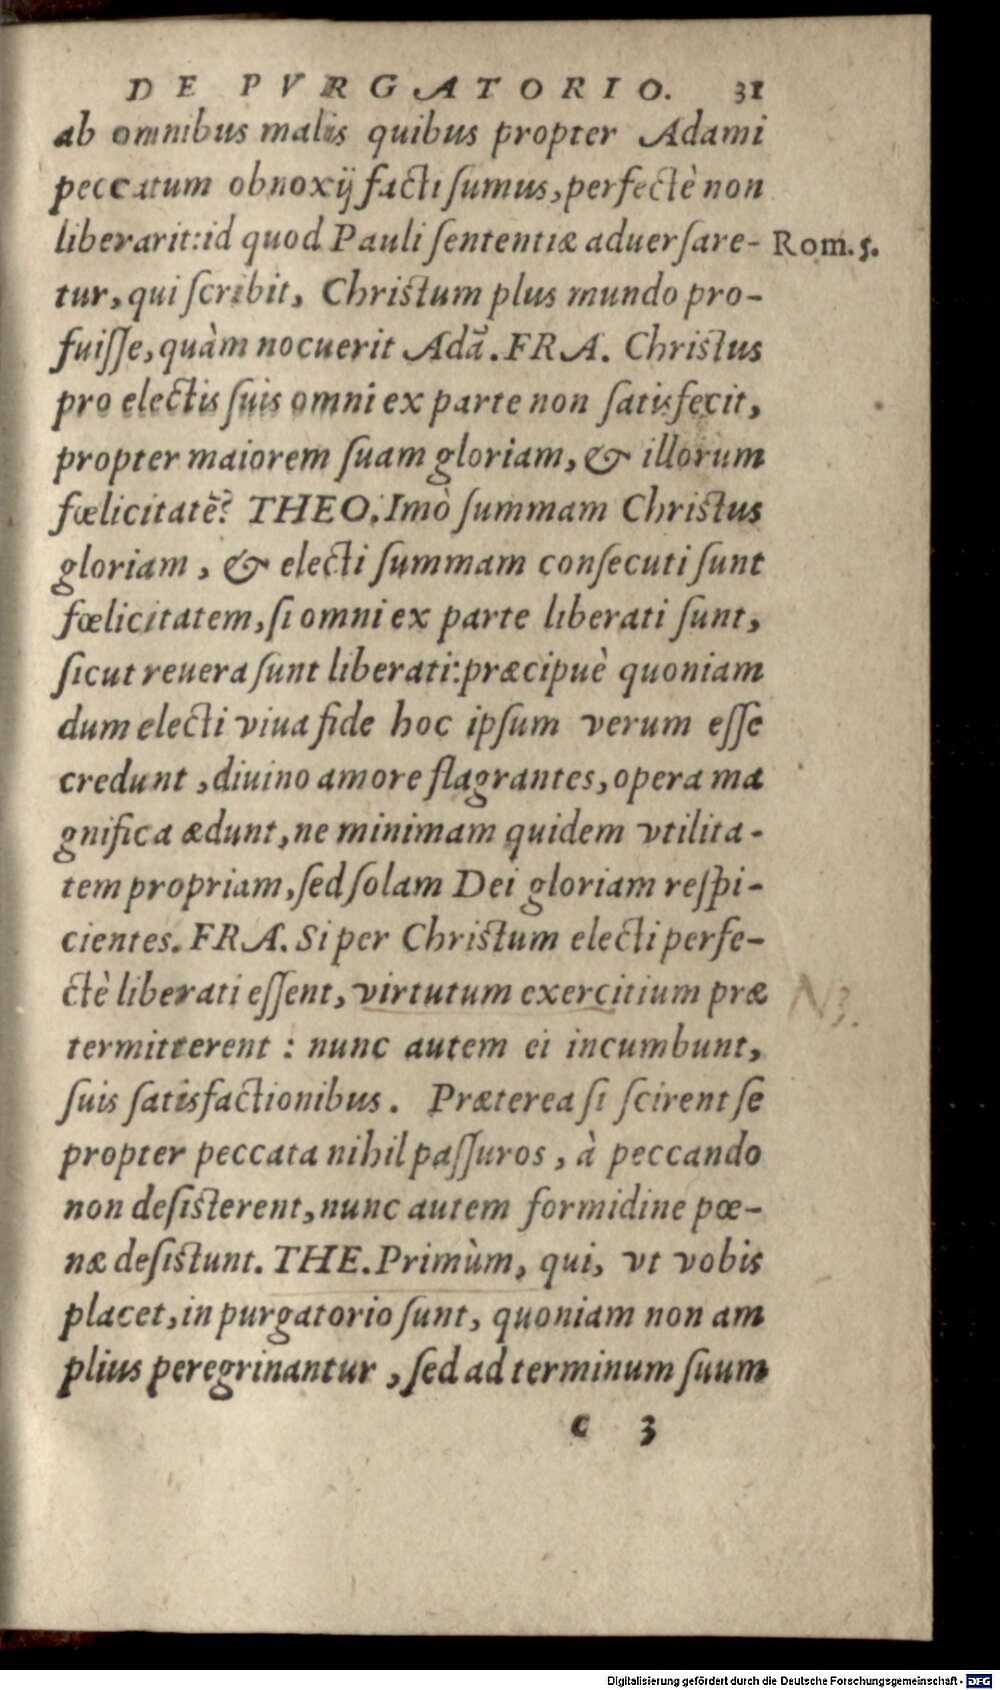 DE PVRGATORIO. 31
ab omnibus malis quibus propter Adami
peccatum obnoxij facti ſumus, perfectè non
liberarit: id quod Pauli ſententiæ aduerſare- Rom. 5.
tur, qui ſcribit, Chriſtum plus mundo pro-
fuiſſe, quàm nocuerit Adā. FRA. Chriſtus
pro electis ſuis omni ex parte non ſatisfecit,
propter maiorem ſuam gloriam, & illorum
fœlicitatē? THEO. Imò ſummam Chriſtus
gloriam, & electi ſummam conſecuti ſunt
fœlicitatem, ſi omni ex parte liberati ſunt,
ſicut reuera ſunt liberati: præcipuè quoniam
dum electi viua fide hoc ipſum verum eſſe
credunt, diuino amore flagrantes, opera ma
gnifica ædunt, ne minimam quidem vtilita-
tem propriam, ſed ſolam Dei gloriam reſpi-
cientes. FRA. Si per Chriſtum electi perfe-
ctè liberati eſſent, virtutum exercitium præ
termitterent: nunc autem ei incumbunt,
ſuis ſatisfactionibus. Præterea ſi ſcirent ſe
propter peccata nihil paſſuros, à peccando
non deſiſterent, nunc autem formidine pœ-
næ deſiſtunt. THE. Primùm, qui, vt vobis
placet, in purgatorio ſunt, quoniam non am
plius peregrinantur, ſed ad terminum ſuum
c 3
Digitalisierung gefördert durch die Deutsche Forschungsgemeinschaft - DFG